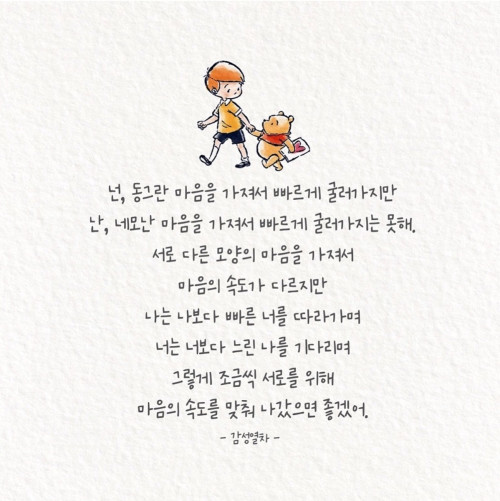 넌, 동그란 마음을 가져서 빠르게 굴러가지만
난, 네모난 마음을 가져서 빠르게 굴러가지는 못해.
서로 다른 모양의 마음을 가져서
마음의 속도가 다르지만
나는 나보다 빠른 너를 따라가며
너는 너보다 느린 나를 기다리며
그렇게 조금씩 서로를 위해
마음의 속도를 맞춰 나갔으면 좋겠어.
- 감성열차 -